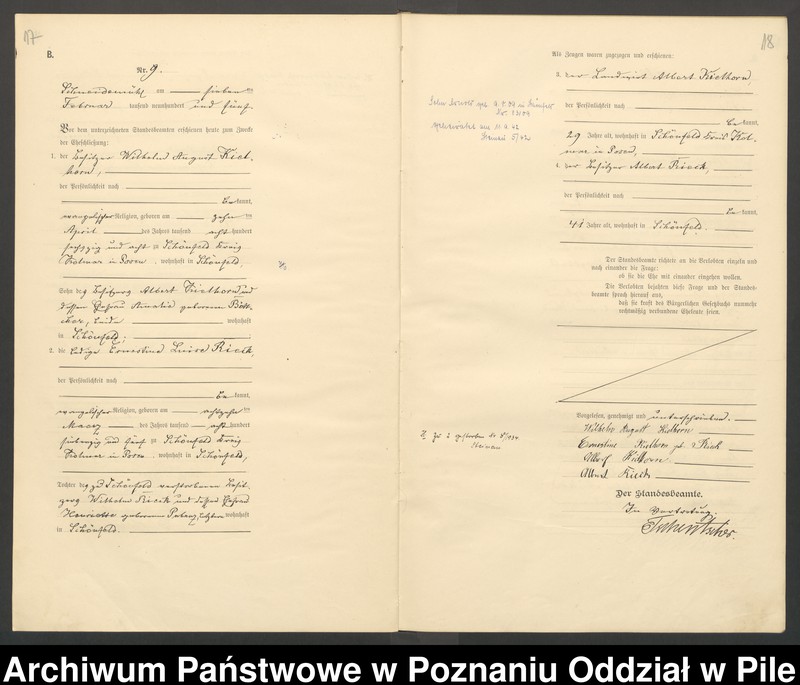 17
B.
Nr. 9.
Schneidemühl am sieben ten
Februar tausend neunhundert und fünf
Vor dem unterzeichneten Standesbeamten erschienen heute zum Zweck
der Eheschließung:
1. der Besitzer Wilhelm August Kiel-
horn,
der Persönlichkeit nach
be kannt,
evangelischer Religion, geboren am zehn ten
April des Jahres tausend acht hundert
sechzig und acht zu Schönfeld Kreis
Kolmar in Posen, wohnhaft in Schönfeld,
Sohn des Besitzers Albert Kielhorn und
dessen Ehefrau Amalie geborenen
beide wohnhaft
in Schönfeld;
2. die ledige Ernestine Luise Rieck,
der Persönlichkeit nach
be kannt,
evangelischer Religion, geboren am achtzehn ten
März des Jahres tausend acht hundert
siebenzig und fünf zu Schönfeld Kreis
Kolmar in Posen, wohnhaft in Schönfeld,
Tochter des zu Schönfeld verstorbenen Besit-
zers Wilhelm Rieck und dessen Ehefrau
Henriette geborenen letztere wohnhaft
in Schönfeld.
18
Als Zeugen waren zugezogen und erschienen:
3. der Landwirt Albert Kielhorn,
der Persönlichkeit nach
be kannt,
29 Jahre alt, wohnhaft in Schönfeld Kreis Kol-
mar in Posen,
4. der Besitzer Albert Rieck,
der Persönlichkeit nach
be kannt,
41 Jahre alt, wohnhaft in Schönfeld.
Der Standesbeamte richtete an die Verlobten einzeln und
nach einander die Frage:
ob sie die Ehe mit einander eingehen wollen.
Die Verlobten bejahten diese Frage und der Standes-
beamte sprach hierauf aus,
daß sie kraft des Bürgerlichen Gesetzbuchs nunmehr
rechtmäßig verbundene Eheleute seien.
Vorgelesen, genehmigt und unterschrieben.
Wilhelm August Kielhorn
Ernestine Kielhorn geb. Rieck
Albert Kielhorn
Albert Rieck
Der Standesbeamte.
In Vertretung.
Archiwum Państwowe w Poznaniu Oddział w Pile